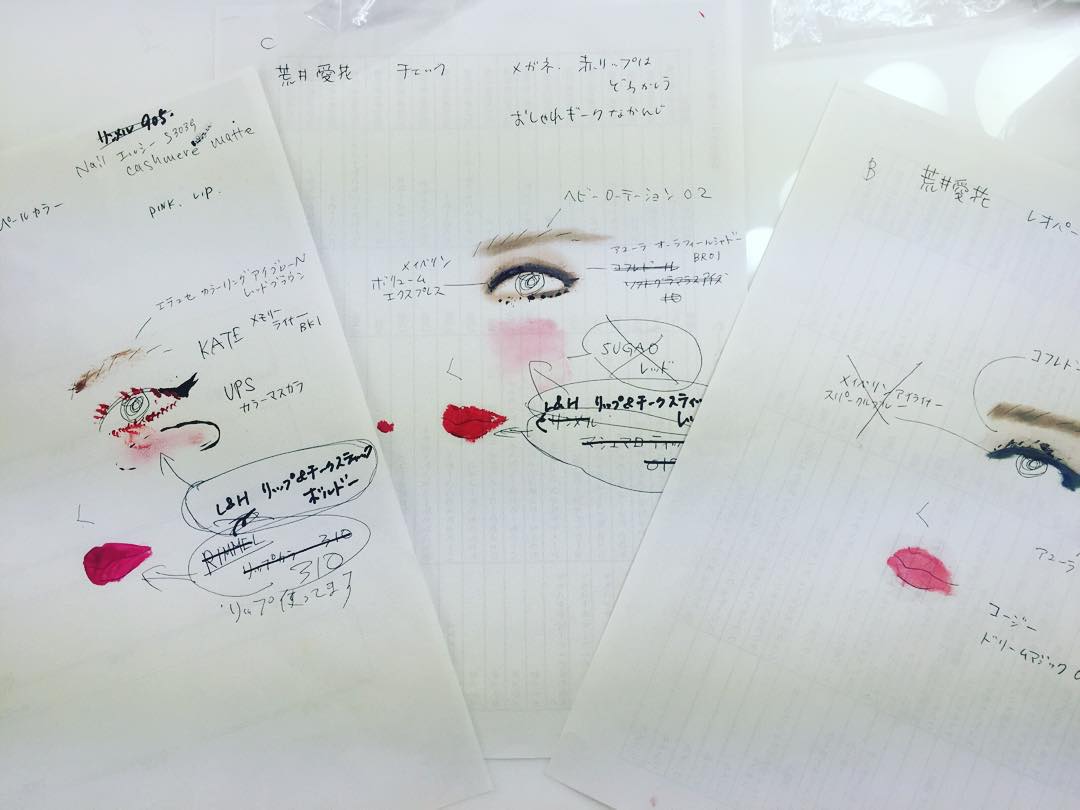 905.
Nail エルシー S3039
cashmere matte
パールカラー
PINK. LIP.
エテュセ カラーリングアイブローN
レッドブラウン
KATE メモリー
ライナー
BK1
UPS
カラーマスカラ
L&H リップ&チークスティック
ボルドー
RIMMEL
310
310
リップ使ってます
C
荒井愛花 チェック メガネ、赤リップは
どちらかしら
おしゃれギークなかんじ
ヘビーローテーション 02
メイベリン
ボリューム
エクスプレス
アユーラ オーラフィールシャドー
BR01
コフレドール
SUGAO
レッド
L&H リップ&チークスティッ
レ
B 荒井愛花
レオパー
メイベリン アイライナー
スパークルブルー
コフレド
アユーラ
コージー
ドリームマジック